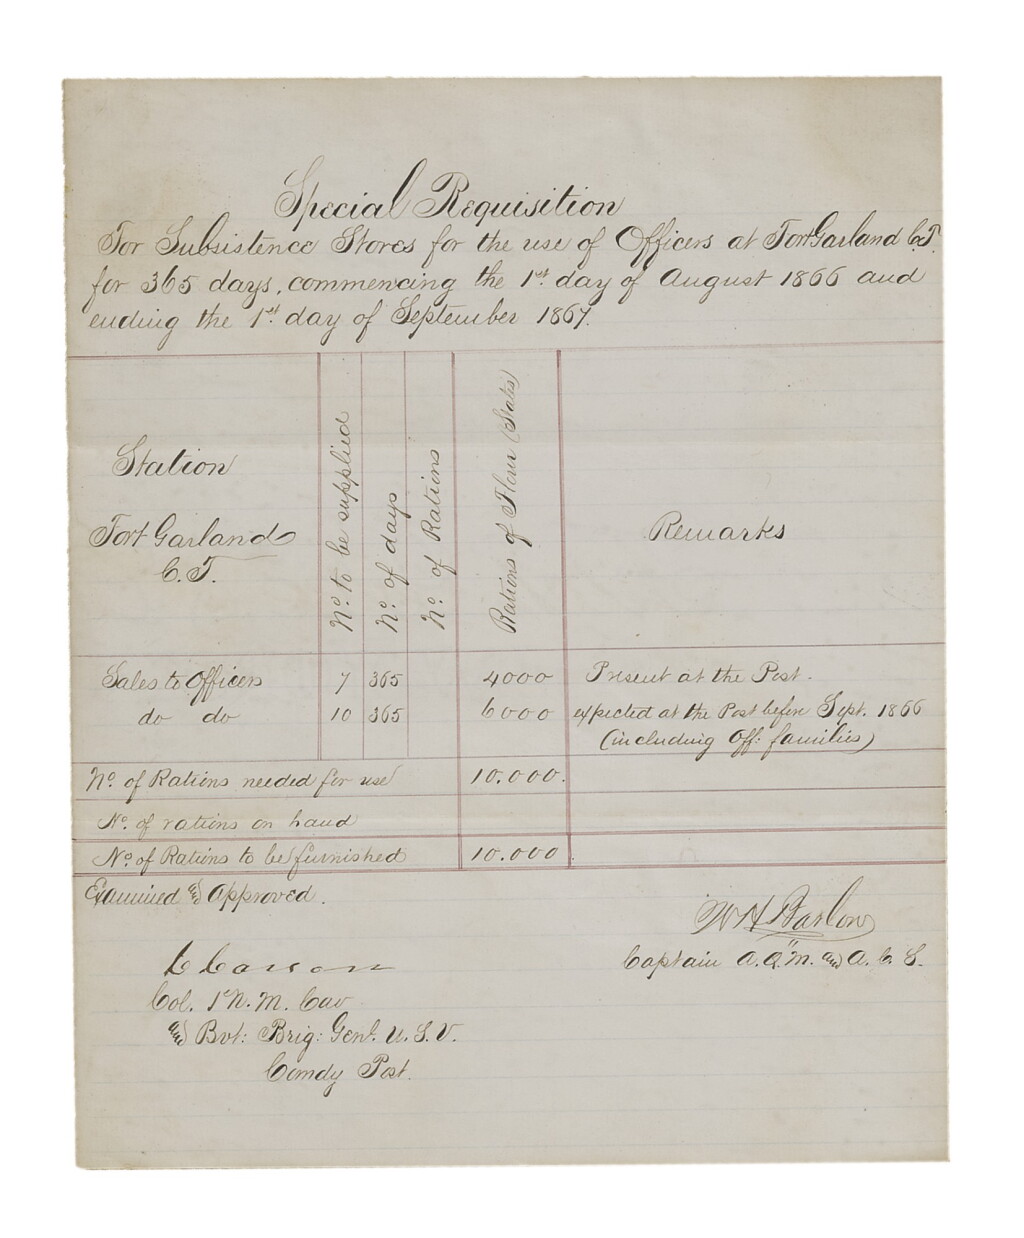 Special Requisition
For Subsistence Stores for the use of Officers at Fort Garland C.T.
for 365 days, commencing the 1st day of August 1866 and
ending the 1st day of September 1867.
Station
Fort Garland
C. T.
No. to be supplied
No. of days
No. of Rations
Rations of Flour (Sales)
Remarks
Sales to Officers 7 365 4000 Present at the Post.
do do 10 365 6000 expected at the Post before Sept. 1866
(including Off: families)
No. of Rations needed for use 10.000.
No. of rations on hand
No. of Rations to be furnished 10.000.
Examined and Approved.
W H Barlow
Captain A. A. Q. M. and A. C. S.
C Carson
Col. 1st N. M. Cav
and Bvt: Brig: Genl. U. S. V.
Comdg Post.